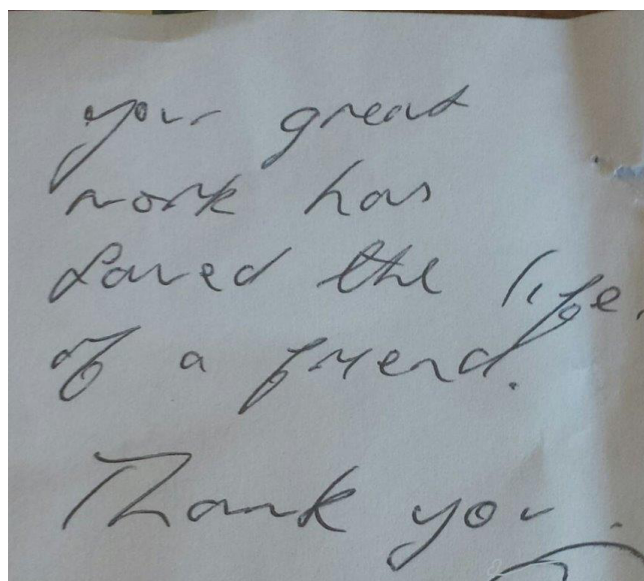 your great
work has
saved the life
of a friend.
Thank you.